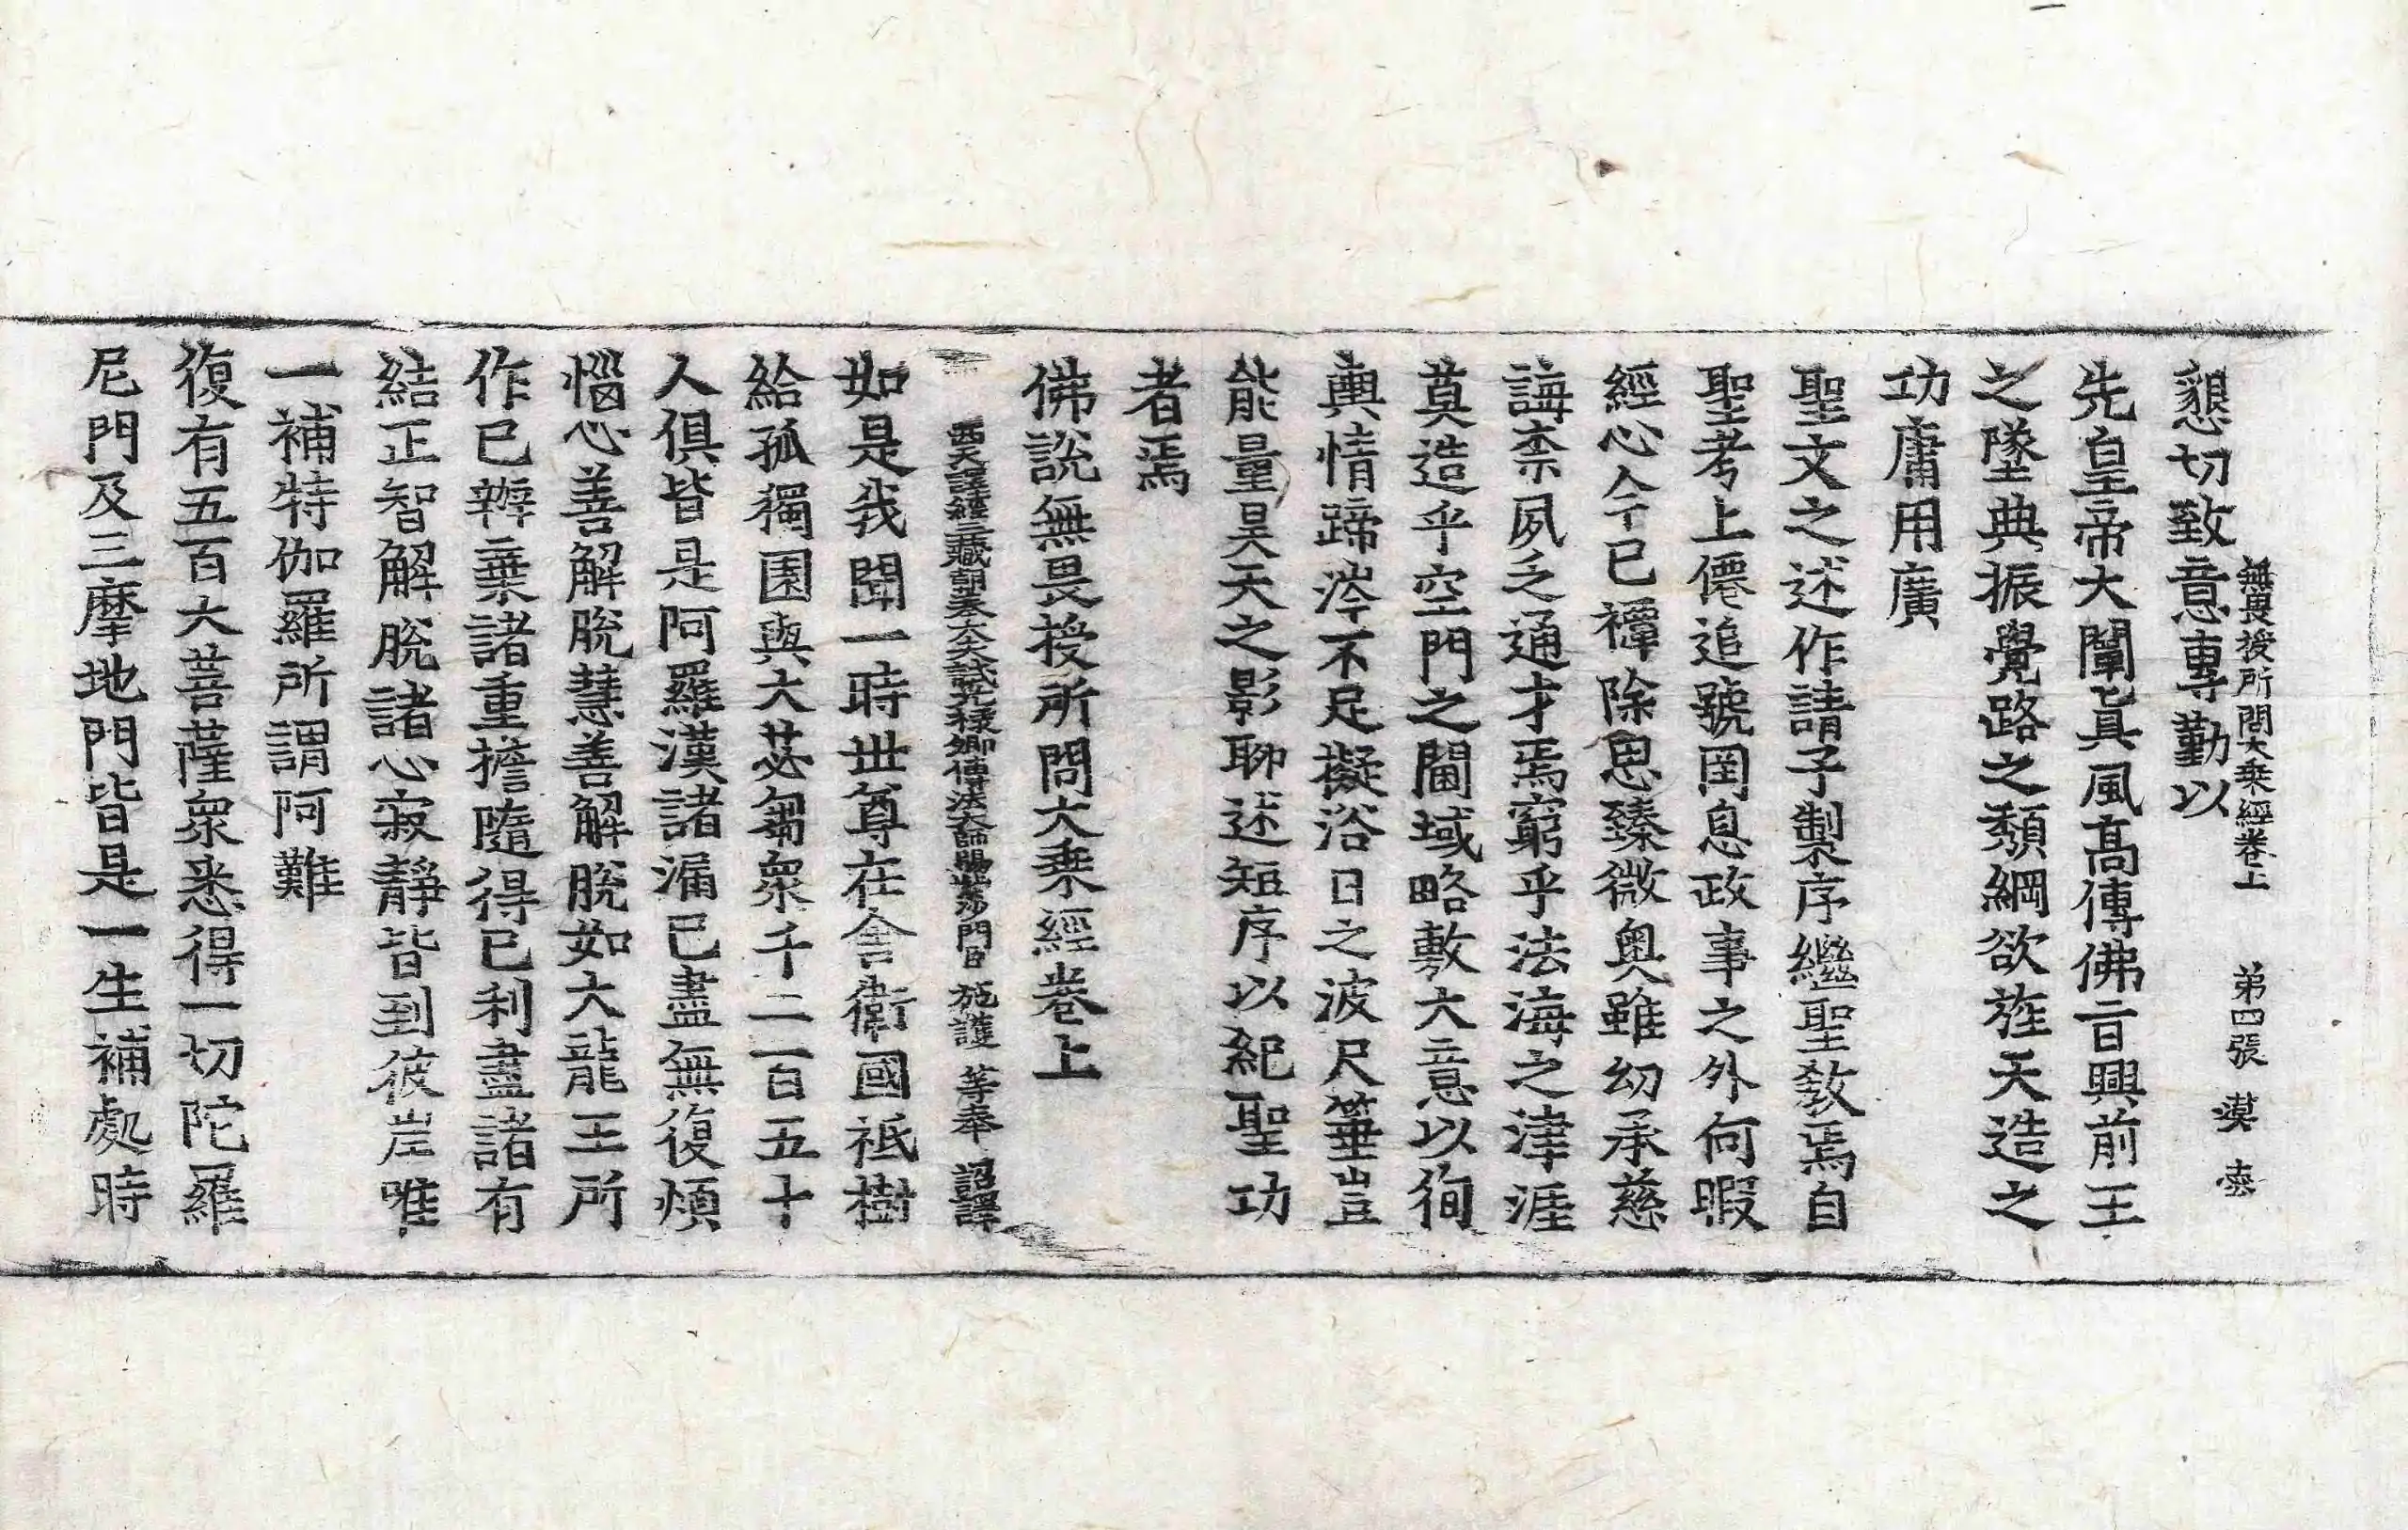 無畏授所問大乗經卷上 第四張 漠
懇切致意專勤以
先皇帝大闡眞風高傳佛音興前王
之墜典振覺路之頹綱欲旌天造之
功庸用廣
聖文之述作請予製序繼聖敎焉自
聖考上僊追號罔息政事之外何暇
經心今已禫除思臻微奧雖幼承慈
誨柰夙乏通才焉窮乎法海之津涯
莫造乎空門之閫域略敷大意以徇
輿情蹄涔不足擬浴日之波尺箠豈
能量昊天之影聊述短序以紀聖功
者焉
佛說無畏授所問大乗經卷上
西天譯經三藏朝奉大夫試光祿卿傳法大師賜紫沙門臣 施護 等奉 詔譯
如是我聞一時世尊在舍衛國祇樹
給孤獨園與大苾芻衆千二百五十
人俱皆是阿羅漢諸漏已盡無復煩
惱心善解脫慧善解脫如大龍王所
作已辦棄諸重擔隨得已利盡諸有
結正智解脫諸心寂靜皆到彼岸唯
一補特伽羅所謂阿難
復有五百大菩薩衆悉得一切陀羅
尼門及三摩地門皆是一生補處時